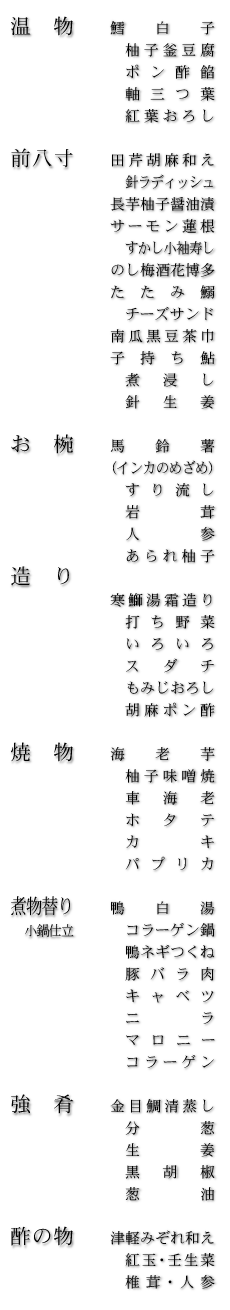 温物 鱈白子
柚子釜豆腐
ポン酢餡
軸三つ葉
紅葉おろし
前八寸 田芹胡麻和え
針ラディッシュ
長芋柚子醤油漬
サーモン蓮根
すかし小袖寿し
のし梅酒花博多
たたみ鰯
チーズサンド
南瓜黒豆茶巾
子持ち鮎
煮浸し
針生姜
お椀 馬鈴薯
(インカのめざめ)
すり流し
岩茸
人参
あられ柚子
造り
寒鰤湯霜造り
打ち野菜
いろいろ
スダチ
もみじおろし
胡麻ポン酢
焼物 海老芋
柚子味噌焼
車海老
ホタテ
カキ
パプリカ
煮物替り 鴨白湯
小鍋仕立 コラーゲン鍋
鴨ネギつくね
豚バラ肉
キャベツ
ニラ
マロニー
コラーゲン
強肴 金目鯛清蒸し
分葱
生姜
黒胡椒
葱油
酢の物 津軽みぞれ和え
紅玉・壬生菜
椎茸・人参